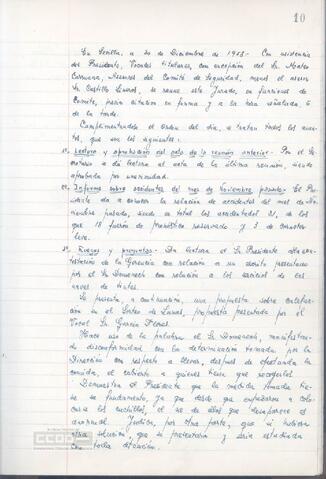 10
En Sevilla, a 20 de Diciembre de 1963 - Con asistencia
del Presidente, Vocales titulares, con excepción del Sr. Mateo
Carmona, Asesores del Comité de Seguridad, menos el asesor
Sr. Castillo, se reune este Jurado, en funciones de
Comité, previa citación en forma y a la hora señalada, 6
de la tarde.
Cumplimentando el orden del día, se tratan todos los asun-
tos, que son los siguientes:
1º Lectura y aprobación del acta de la reunión anterior - Por el Se-
cretario se da lectura al acta de la última reunión, siendo
aprobada por unanimidad.
2º Informe sobre accidentes del mes de Noviembre pasado - El Pre-
sidente da a conocer la relación de accidentes del mes de No-
viembre pasado, siendo en total los accidentados 21, de los
que 18 fueron de pronóstico reservado y 3 de carácter
leve.
3º Ruegos y preguntas - Da lectura el Sr. Presidente a la con-
testación de la Gerencia con relación a un escrito presentado
por el Sr. Domenech con relación a los servicios de las
naves de
Se presenta, a continuación, una propuesta sobre
en el de propuesta presentada por el
Vocal Sr. García
Hace uso de la palabra el Sr. Domenech, manifestan-
do disconformidad con la determinación tomada por la
Dirección con respecto a después de efectuada la
comida, el cubierto a quienes tiene que recogerlos
Demuestra el Presidente que la medida tomada tie-
ne su fundamento, ya que desde que empezaron a colo-
carse los cuchillos, el de ellos que desaparece el
personal. por otra parte, que si hubiera
otra solución, que se presentara y sería estudiada
con toda atención.
CCOO